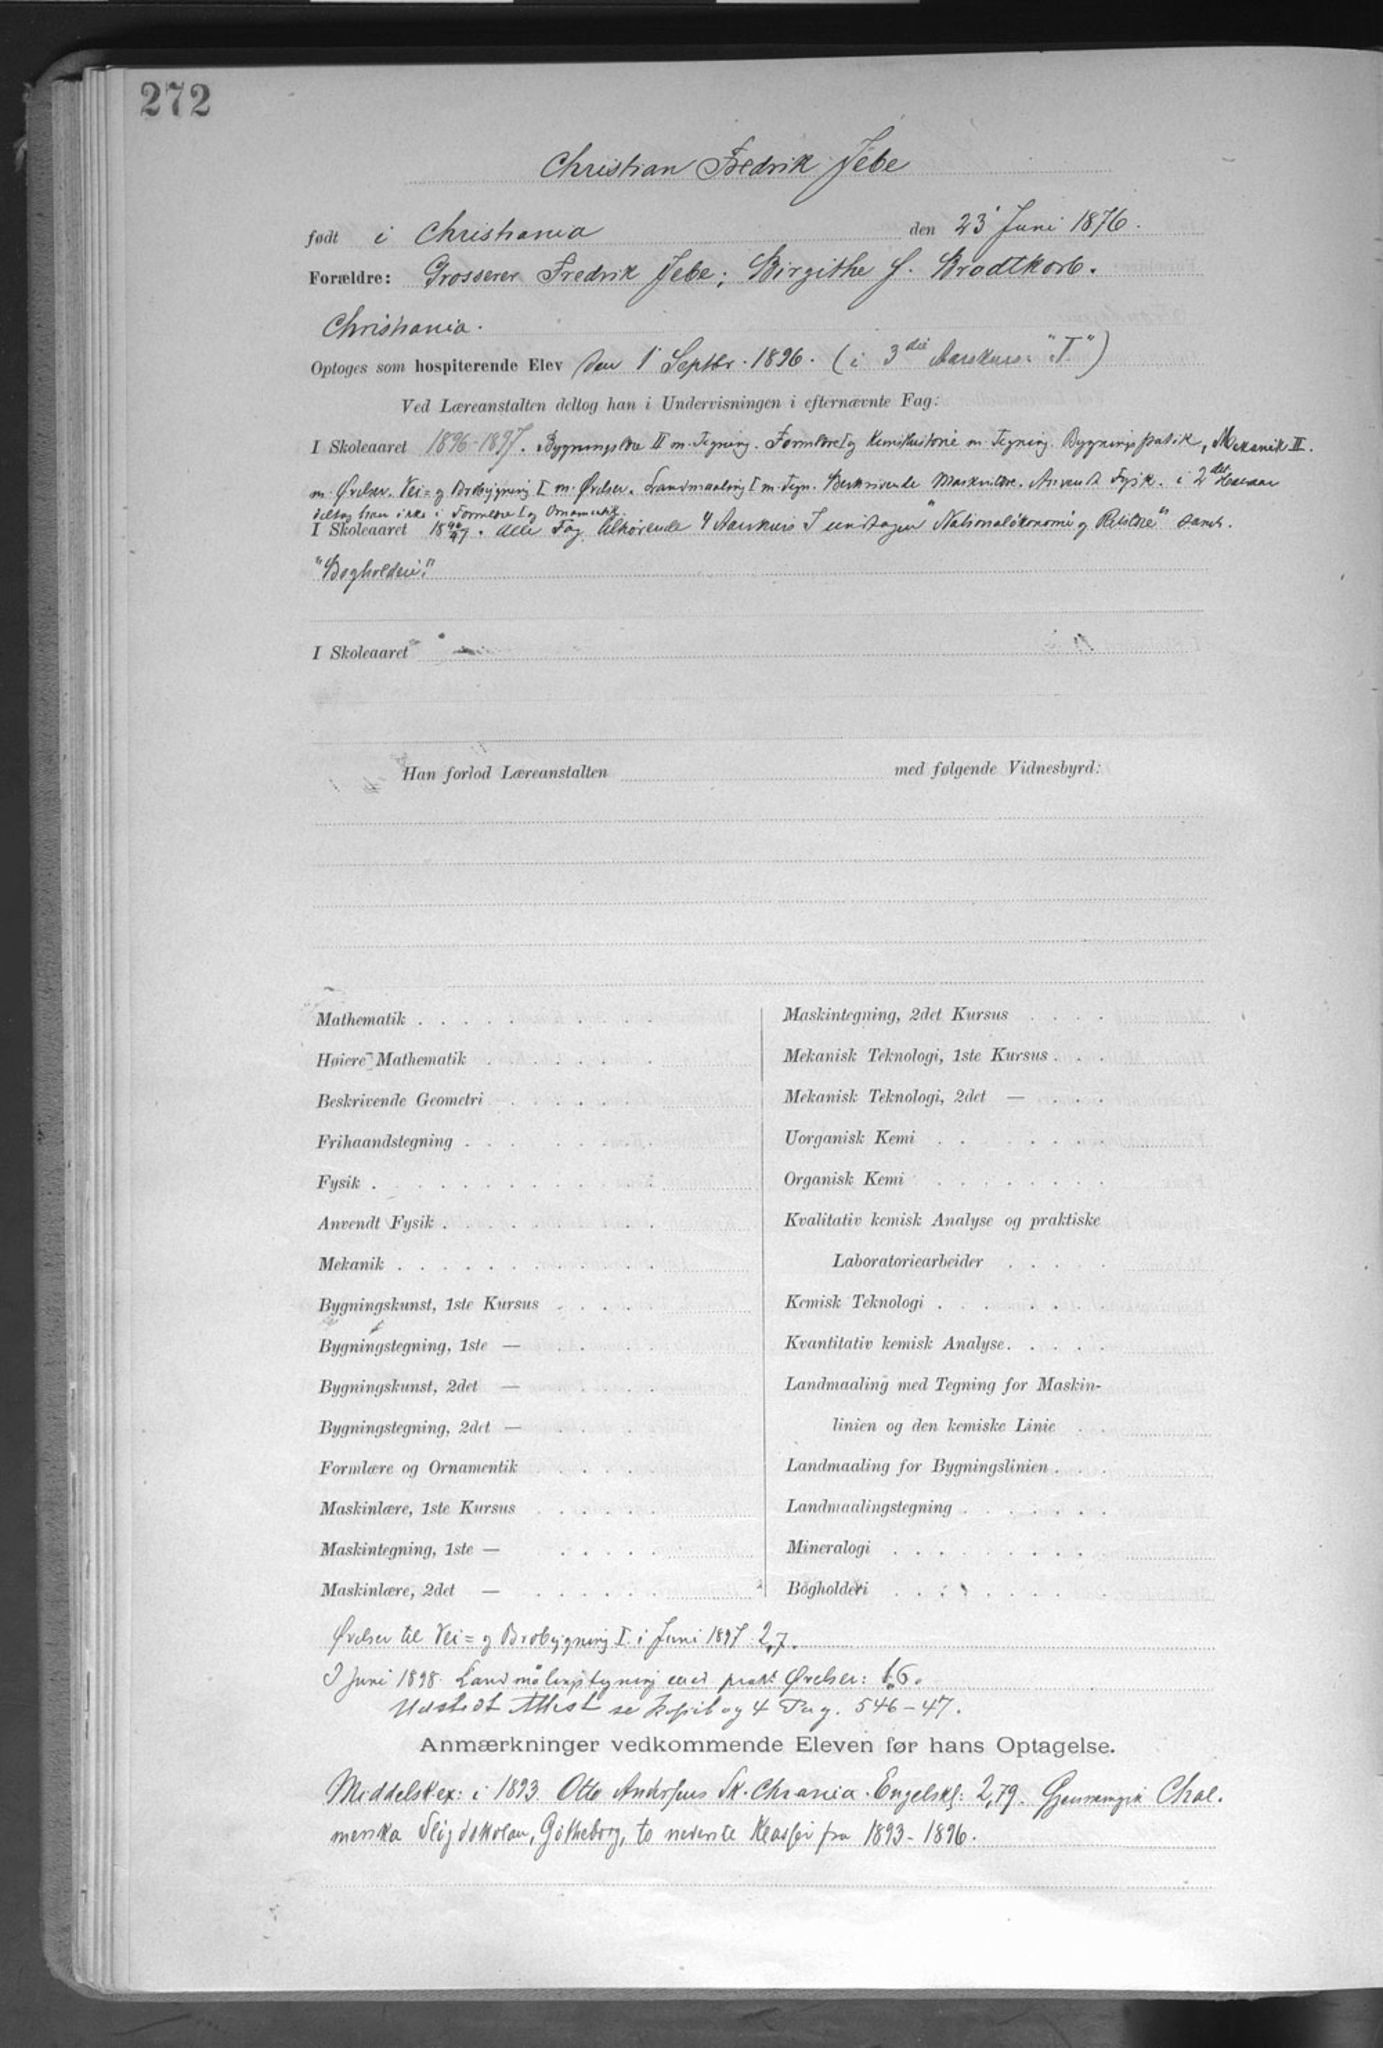 272
Christian Fredrik Jebe
født i Christiania den 23' Juni 1876.
Forældre: Grosserer Fredrik Jebe; Birgithe J. Brodtkorb.
Christiania.
Optoges som hospiterende Elev den 1' Septbr. 1896. (i 3die Aarskurs: "T.")
Ved Læreanstalten deltog han i Undervisningen i efternævnte Fag:
I Skoleaaret 1896-1897. Bygningslære II m. Tegning. Formlære I og Kunsthistorie m. Tegning. Bygningsstatik, Mekanik II.
m. Øvelser. Vei= og Brobygning I m. Øvelser. Landmaaling I m. Tegn. Beskrivende Maskinlære. Anvendt Fysik. i 2det
deltog han ikke i Formlære I og Ornamentik.
I Skoleaaret 18 alle Fag tilhørende 4 Aarskurs I undtagen "Nationaløkonomi og Retslære" samt
"Bogholderi."
I Skoleaaret
Han forlod Læreanstalten med følgende Vidnesbyrd:
Mathematik
Høiere Mathematik
Beskrivende Geometri
Frihaandstegning
Fysik
Anvendt Fysik
Mekanik
Bygningskunst, 1ste Kursus
Bygningstegning, 1ste —
Bygningskunst, 2det —
Bygningstegning, 2det —
Formlære og Ornamentik
Maskinlære, 1ste Kursus
Maskintegning, 1ste —
Maskinlære, 2det —
Maskintegning, 2det Kursus
Mekanisk Teknologi, 1ste Kursus
Mekanisk Teknologi, 2det —
Uorganisk Kemi
Organisk Kemi
Kvalitativ kemisk Analyse og praktiske
Laboratoriearbeider
Kemisk Teknologi
Kvantitativ kemisk Analyse
Landmaaling med Tegning for Maskin-
linien og den kemiske Linie
Landmaaling for Bygningslinien
Landmaalingstegning
Mineralogi
Bogholderi
Øvelser til Vei= og Brobygning I. i Juni 1897 2,7.
I Juni 1898. Landmålingstegning med prakt Øvelser: 1.6.
Udstedt Attest se Kopibog 4 Pag. 546-47.
Anmærkninger vedkommende Eleven før hans Optagelse.
Middelsk.ex: i 1893. Otto Andersens Sk. Chrania. Engelskl: 2,79. Gjennemgik Chal-
merska Slöjdskolan, Gøtheborg, to nederste Klasser fra 1893-1896.